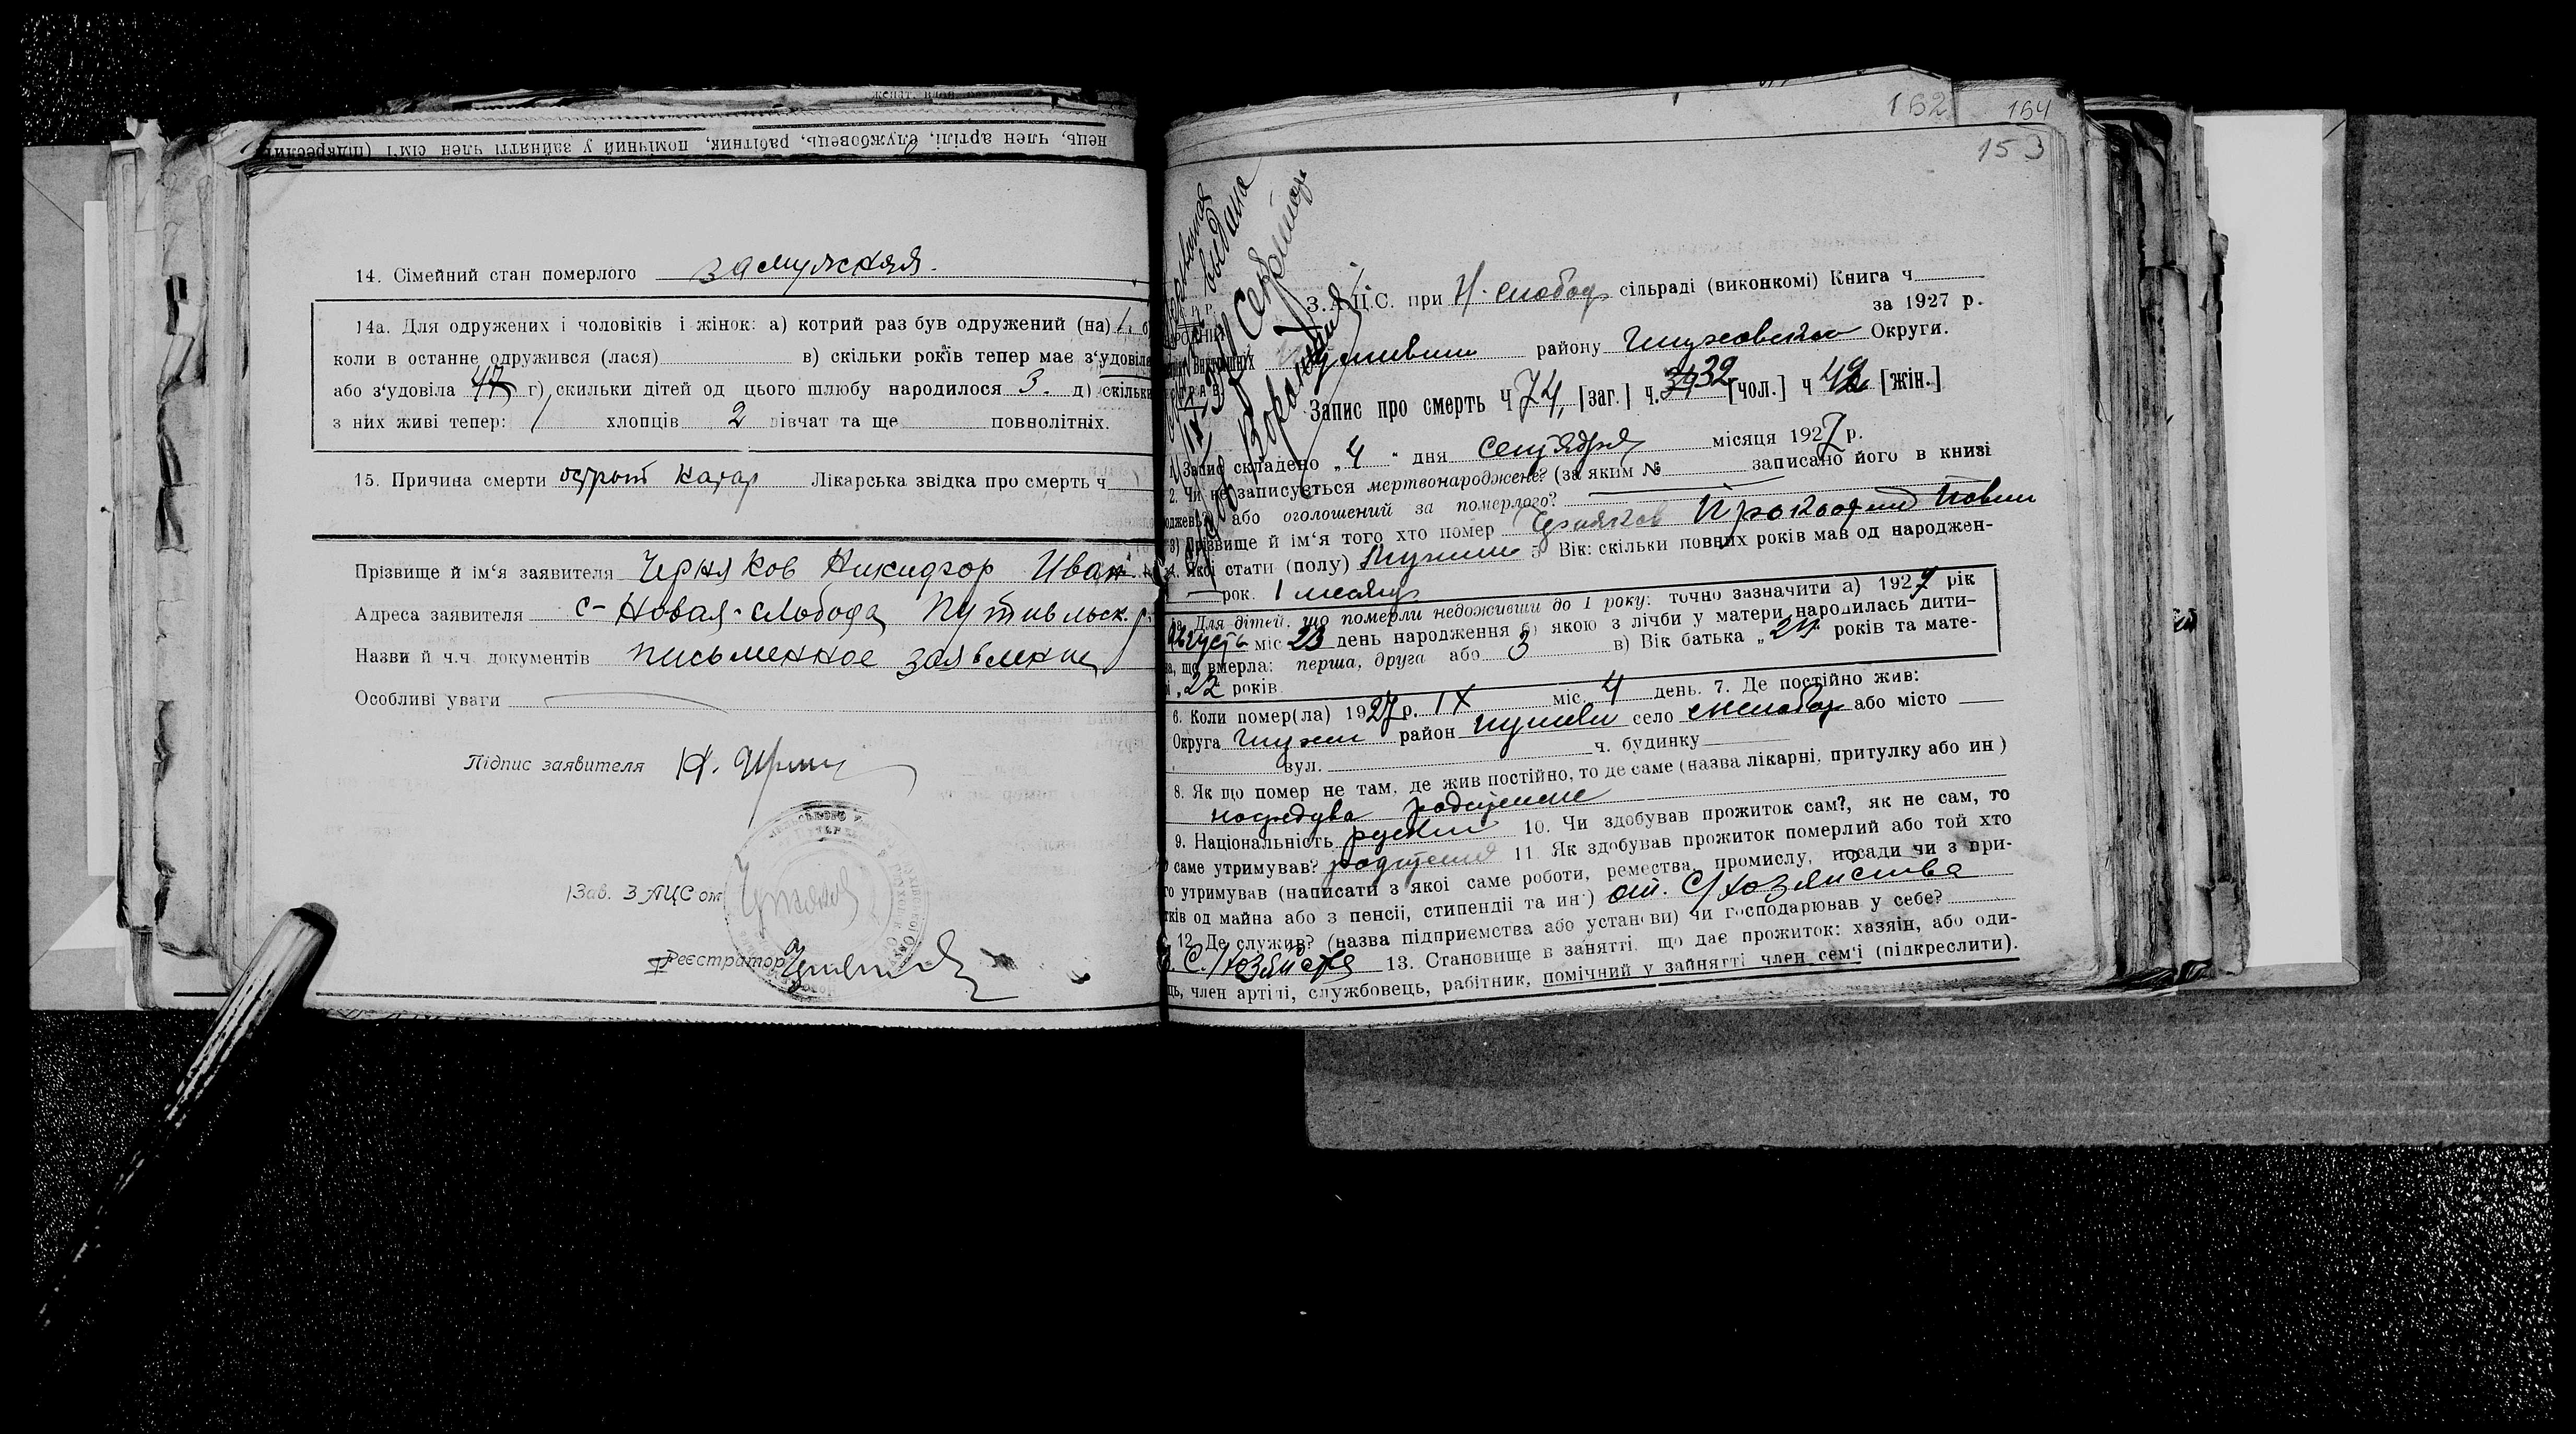 нець, член артілі, службовець, рабітник, помічний у зайнятті член сім'ї (підкреслити
14. Сімейний стан померлого замужняя.
14а. Для одружених і чоловіків і жінок: а) котрий раз був одружений (на) 1.
коли в останнє одружився (лася) в) скільки років тепер має з'удовіла
або з'удовіла г) скильки дітей од цього шлюбу народилося 3. д) скільки
з них живі тепер: 1 хлопців 2 дівчат та ще повнолітніх.
15. Причина смерти острой катар Лікарська звідка про смерть ч
Прізвище й ім'я заявителя Черняков Никифор Иван
Адреса заявителя с- Новая-слобода Путивльск. р.
Назви й ч.ч. документів письменное заявление
Особливі уваги
Підпис заявителя Н.
Зав. ЗАЦСом
Реєстратор
162 164
153
выдана
З.А.Ц.С. при Н. слобод сільраді (виконкомі) Книга ч
за 1927 р.
району Глуховской Округи.
Запис про смерть ч 74, [заг.] ч. 32 [чол.] ч 42 [жін.]
1. Запис складено „4" дня сентября місяця 1927 р.
2. Чи не записується мертвонароджене? (за яким № записано його в книзі
або оголошений за померлого?
3) Прізвище й ім'я того хто помер Черняков Прокофий
4. Якої стати (полу) 5 Вік: скільки повних років мав од народжен-
рок. 1 месяц
5а. Для дітей, що померли недоживши до 1 року: точно зазначити а) 1927 рік
Август міс 23 день народження б) якою з лічби у матери народилась дити-
на, що вмерла: перша, друга або 3 в) Вік батька „24" років та мате-
рі „22 років.
6. Коли помер(ла) 1927 р. IX міс. 4 день. 7. Де постійно жив:
Округа Глухов район Путивл село Н слобод або місто
вул. ч. будинку
8. Як що помер не там, де жив постійно, то де саме (назва лікарні, притулку або ин)
9. Національність руский 10. Чи здобував прожиток сам?, як не сам, то
хто саме утримував? родители 11. Як здобував прожиток померлий або той хто
його утримував (написати з якої саме роботи, ремества, промислу, посади чи з при-
тків од майна або з пенсії, стипендії та ин) от. С/хозяйства
12. Де служив? (назва підприємства або установи) чи господарював у себе?
С./хозяйства 13. Становище в занятті, що дає прожиток: хазяїн, або оди-
ць, член артілі, службовець, рабітник, помічний у зайнятті член сем'ї (підкреслити).